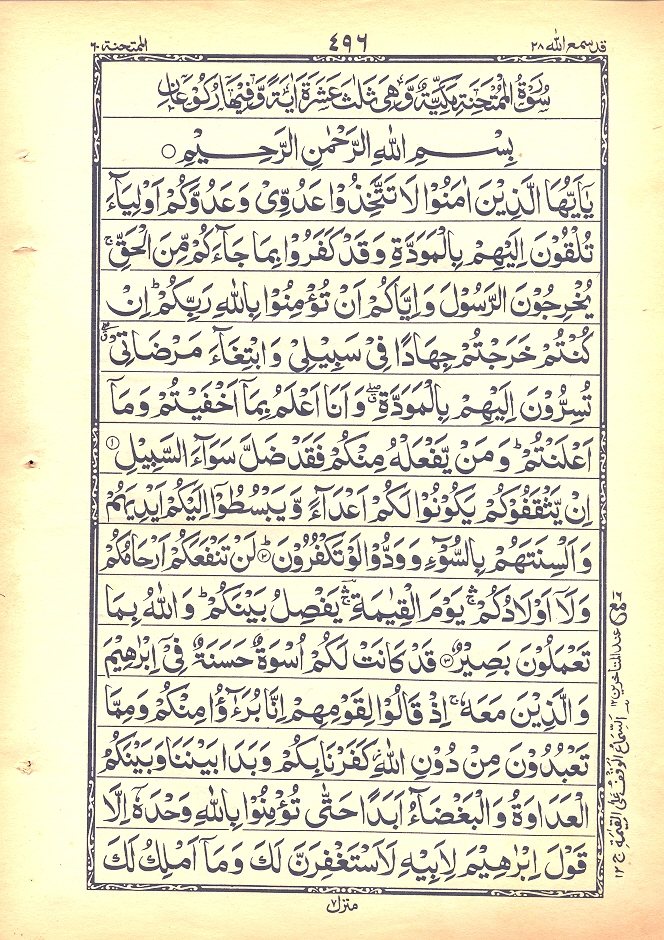 قد سمع الله ٢٨
٤٩٦
الممتحنة ٦٠
سُوْرَةُ الْمُمْتَحِنَةِ مَكِّيَّةٌ وَّهِىَ ثَلٰثَ عَشْرَةَ اٰيَةً وَّفِيْهَا رُكُوْعَانِ
بِسْمِ اللّٰهِ الرَّحْمٰنِ الرَّحِيْمِ ○
يٰۤاَيُّهَا الَّذِيْنَ اٰمَنُوْا لَا تَتَّخِذُوْا عَدُوِّىْ وَعَدُوَّكُمْ اَوْلِيَآءَ
تُلْقُوْنَ اِلَيْهِمْ بِالْمَوَدَّةِ وَقَدْ كَفَرُوْا بِمَا جَآءَكُمْ مِّنَ الْحَقِّ ۚ
يُخْرِجُوْنَ الرَّسُوْلَ وَاِيَّاكُمْ اَنْ تُؤْمِنُوْا بِاللّٰهِ رَبِّكُمْ ؕ اِنْ
كُنْتُمْ خَرَجْتُمْ جِهَادًا فِىْ سَبِيْلِىْ وَابْتِغَآءَ مَرْضَاتِىْ
تُسِرُّوْنَ اِلَيْهِمْ بِالْمَوَدَّةِ ۖ وَاَنَا اَعْلَمُ بِمَاۤ اَخْفَيْتُمْ وَمَاۤ
اَعْلَنْتُمْ ؕ وَمَنْ يَّفْعَلْهُ مِنْكُمْ فَقَدْ ضَلَّ سَوَآءَ السَّبِيْلِ ①
اِنْ يَّثْقَفُوْكُمْ يَكُوْنُوْا لَكُمْ اَعْدَآءً وَّيَبْسُطُوْۤا اِلَيْكُمْ اَيْدِيَهُمْ
وَاَلْسِنَتَهُمْ بِالسُّوْٓءِ وَوَدُّوْا لَوْ تَكْفُرُوْنَ ② ؕ لَنْ تَنْفَعَكُمْ اَرْحَامُكُمْ
وَلَاۤ اَوْلَادُكُمْ ۛۚ يَوْمَ الْقِيٰمَةِ ۛۚ يَفْصِلُ بَيْنَكُمْ ؕ وَاللّٰهُ بِمَا
تَعْمَلُوْنَ بَصِيْرٌ ③ قَدْ كَانَتْ لَكُمْ اُسْوَةٌ حَسَنَةٌ فِىْۤ اِبْرٰهِيْمَ
وَالَّذِيْنَ مَعَهٗ ۚ اِذْ قَالُوْا لِقَوْمِهِمْ اِنَّا بُرَءٰٓؤُا مِنْكُمْ وَمِمَّا
تَعْبُدُوْنَ مِنْ دُوْنِ اللّٰهِ كَفَرْنَا بِكُمْ وَبَدَا بَيْنَنَا وَبَيْنَكُمُ
الْعَدَاوَةُ وَالْبَغْضَآءُ اَبَدًا حَتّٰى تُؤْمِنُوْا بِاللّٰهِ وَحْدَهٗۤ اِلَّا
قَوْلَ اِبْرٰهِيْمَ لِاَبِيْهِ لَاَسْتَغْفِرَنَّ لَكَ وَمَاۤ اَمْلِكُ لَكَ
مع عند المتاخرين ١٢
السماع الوقف على القيمة ج ١٢
منزل ٧